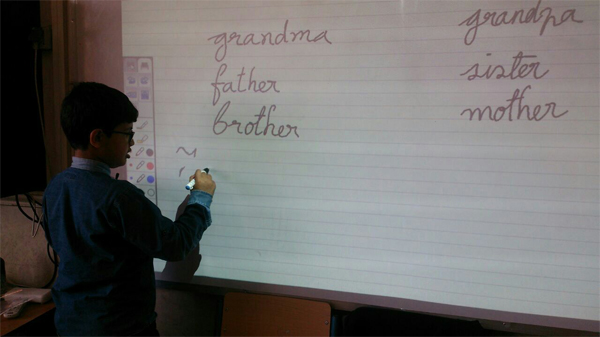 grandma grandpa
father sister
brother mother